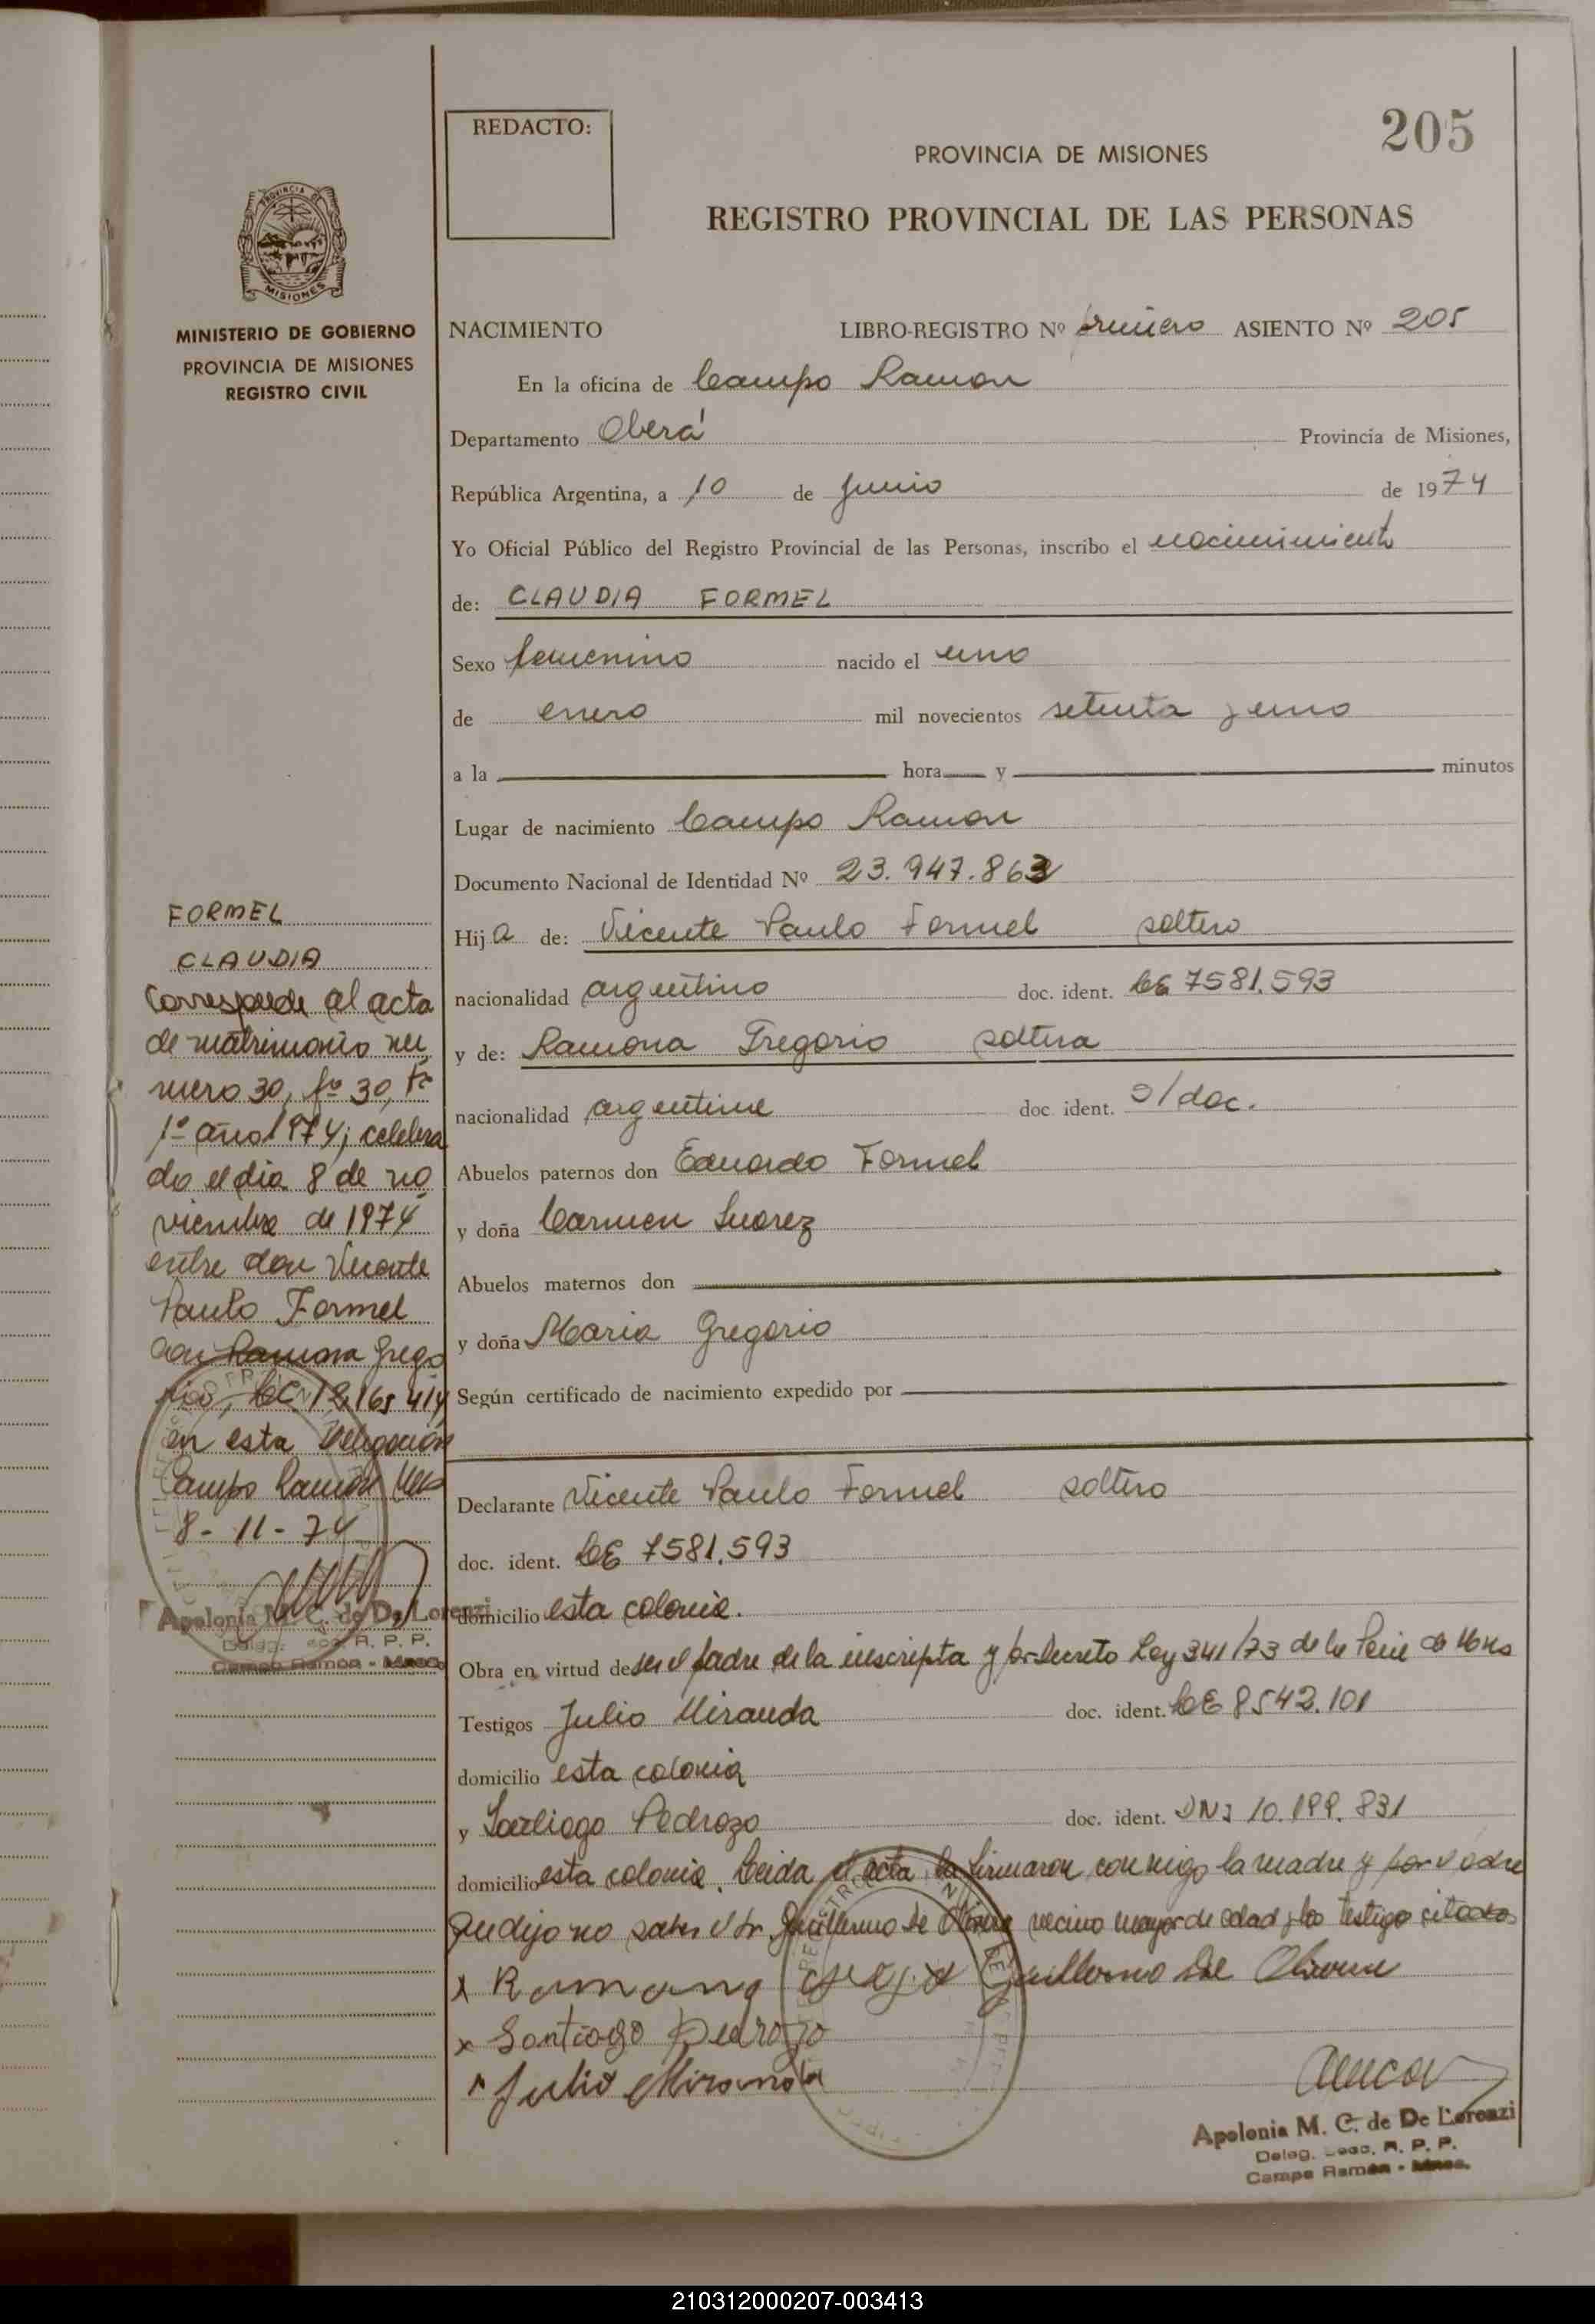 REDACTO:
205
PROVINCIA DE MISIONES
REGISTRO PROVINCIAL DE LAS PERSONAS
PROVINCIA DE
MISIONES
MINISTERIO DE GOBIERNO
PROVINCIA DE MISIONES
REGISTRO CIVIL
NACIMIENTO LIBRO-REGISTRO Nº primero ASIENTO Nº 205
En la oficina de Campo Ramon
Departamento Oberá Provincia de Misiones,
República Argentina, a 10 de junio de 1974
Yo Oficial Público del Registro Provincial de las Personas, inscribo el nacimimiento
de: CLAUDIA FORMEL
Sexo femenino nacido el uno
de enero mil novecientos setenta y uno
a la hora y minutos
Lugar de nacimiento Campo Ramon
Documento Nacional de Identidad Nº 23.947.863
Hij a de: Vicente Paulo Formel soltero
nacionalidad argentino doc. ident. 7581.593
y de: Ramona Gregorio soltera
nacionalidad argentina doc. ident. s/doc.
Abuelos paternos don Eduardo Formel
y doña Carmen Suarez
Abuelos maternos don
y doña Maria Gregorio
Según certificado de nacimiento expedido por
Declarante Vicente Paulo Formel soltero
doc. ident. 7581.593
domicilio esta colonia.
Obra en virtud de ser el padre de la inscripta y por Decreto Ley 341/73 de la
Testigos Julio Miranda doc. ident. 8542.101
domicilio esta colonia
y Santiago Pedrozo doc. ident. DNI 10.199.831
domicilio esta colonia. Leida el acta la firmaron conmigo la madre y por el padre
que dijo no saber el sr. Guillermo De Olivera vecino mayor de edad y los testigo citados
x Ramona Guillermo De Olivera
x Santiago Pedrozo
x Julio Miranda
Apolonia M. C. de De Lorenzi
Deleg. R. P. P.
Campo Ramón - Mnes.
FORMEL
CLAUDIA
Corresponde al acta
de matrimonio nu
mero 30, fº 30, Tº
1º año 1974; celebra
do el dia 8 de no
viembre de 1974
entre don Vicente
Paulo Formel
con Ramona Grego
rio, 12.165.414
en esta Delegación
Campo Ramon
8-11-74
Apolonia M. C. de De Lorenzi
Deleg. R. P. P.
Campo Ramón - Mnes.
210312000207-003413